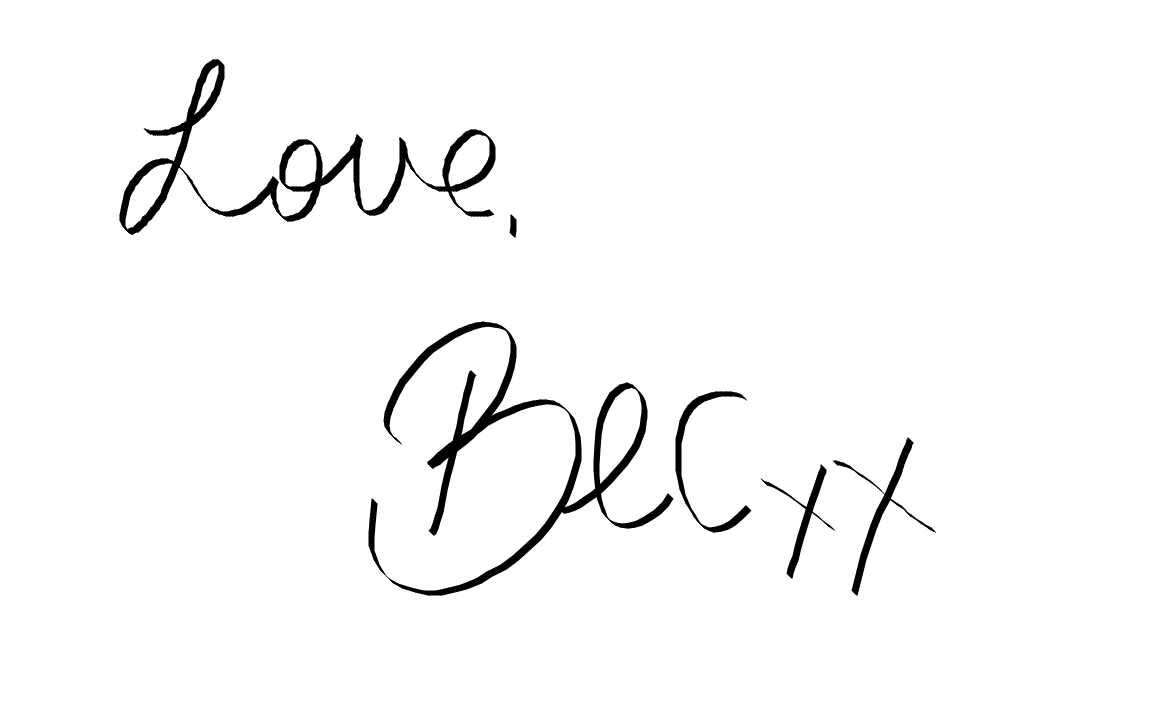 Love,
Bec xx